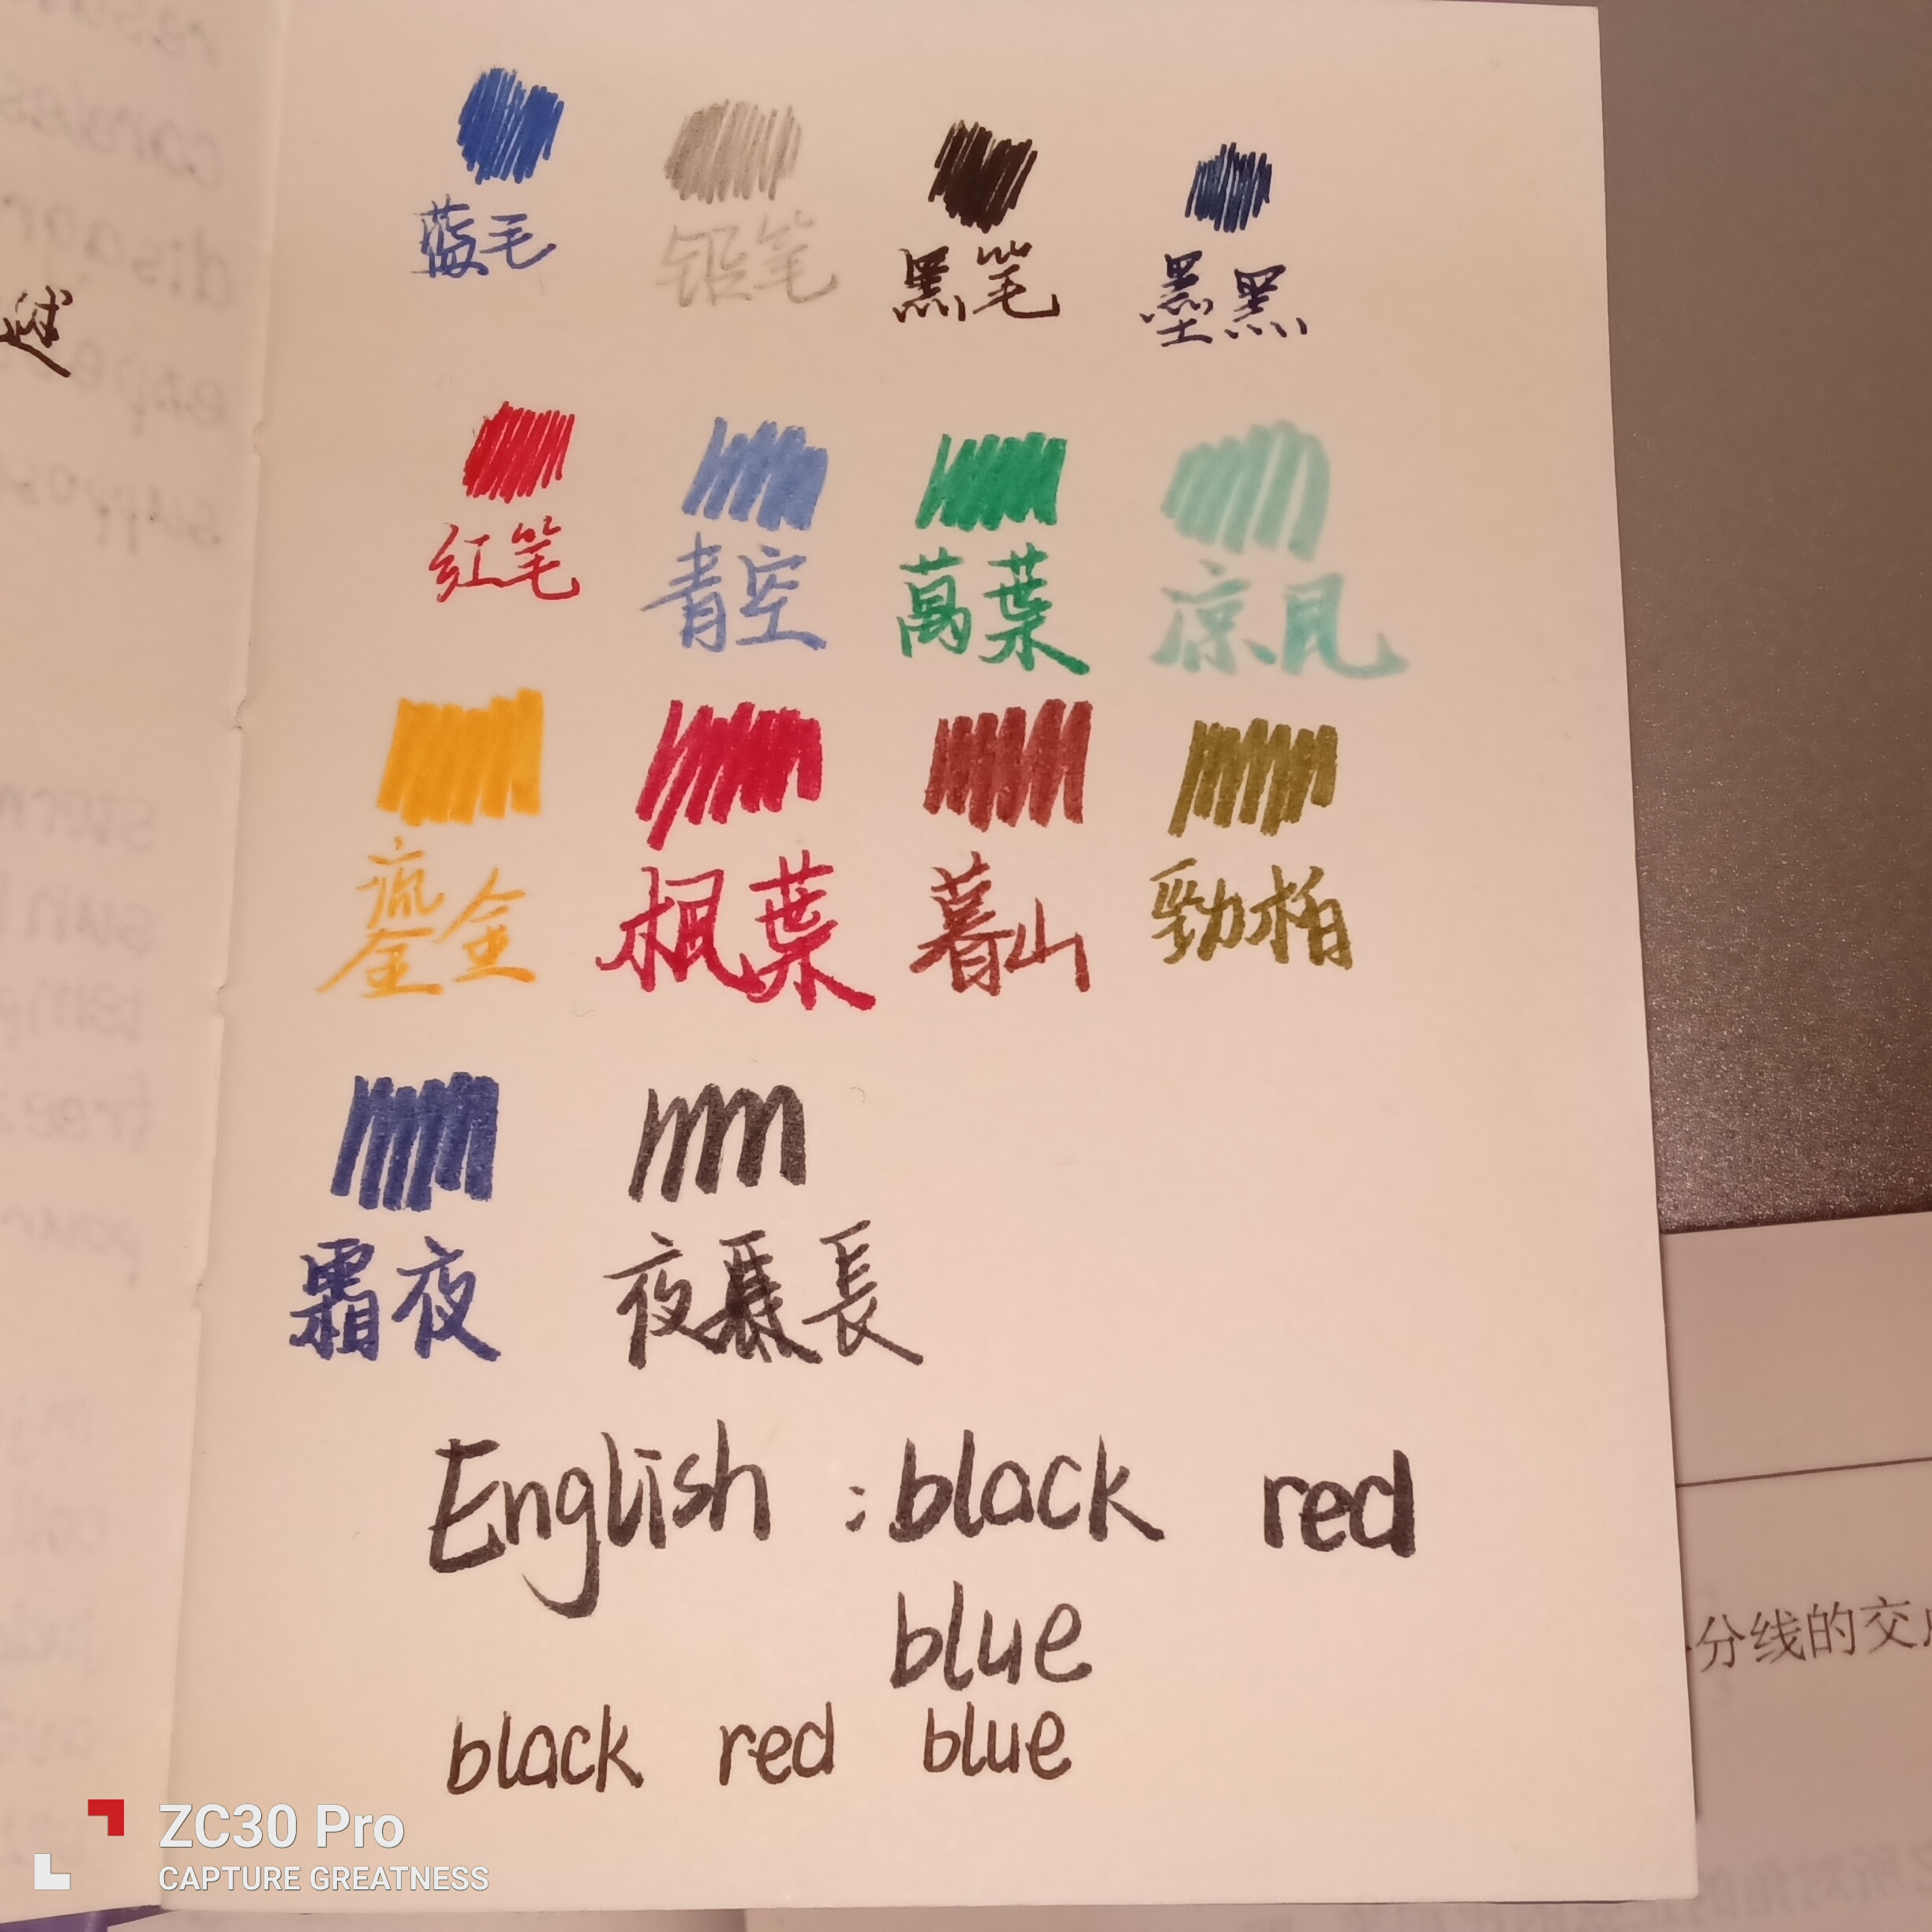 蓝毛 铅笔 黑笔 墨黑
红笔 青空 萬葉 凉风
鎏金 枫葉 暮山 勁柏
霜夜 夜 長
English : black red
blue
black red blue
述
分线的交
ZC30 Pro
CAPTURE GREATNESS